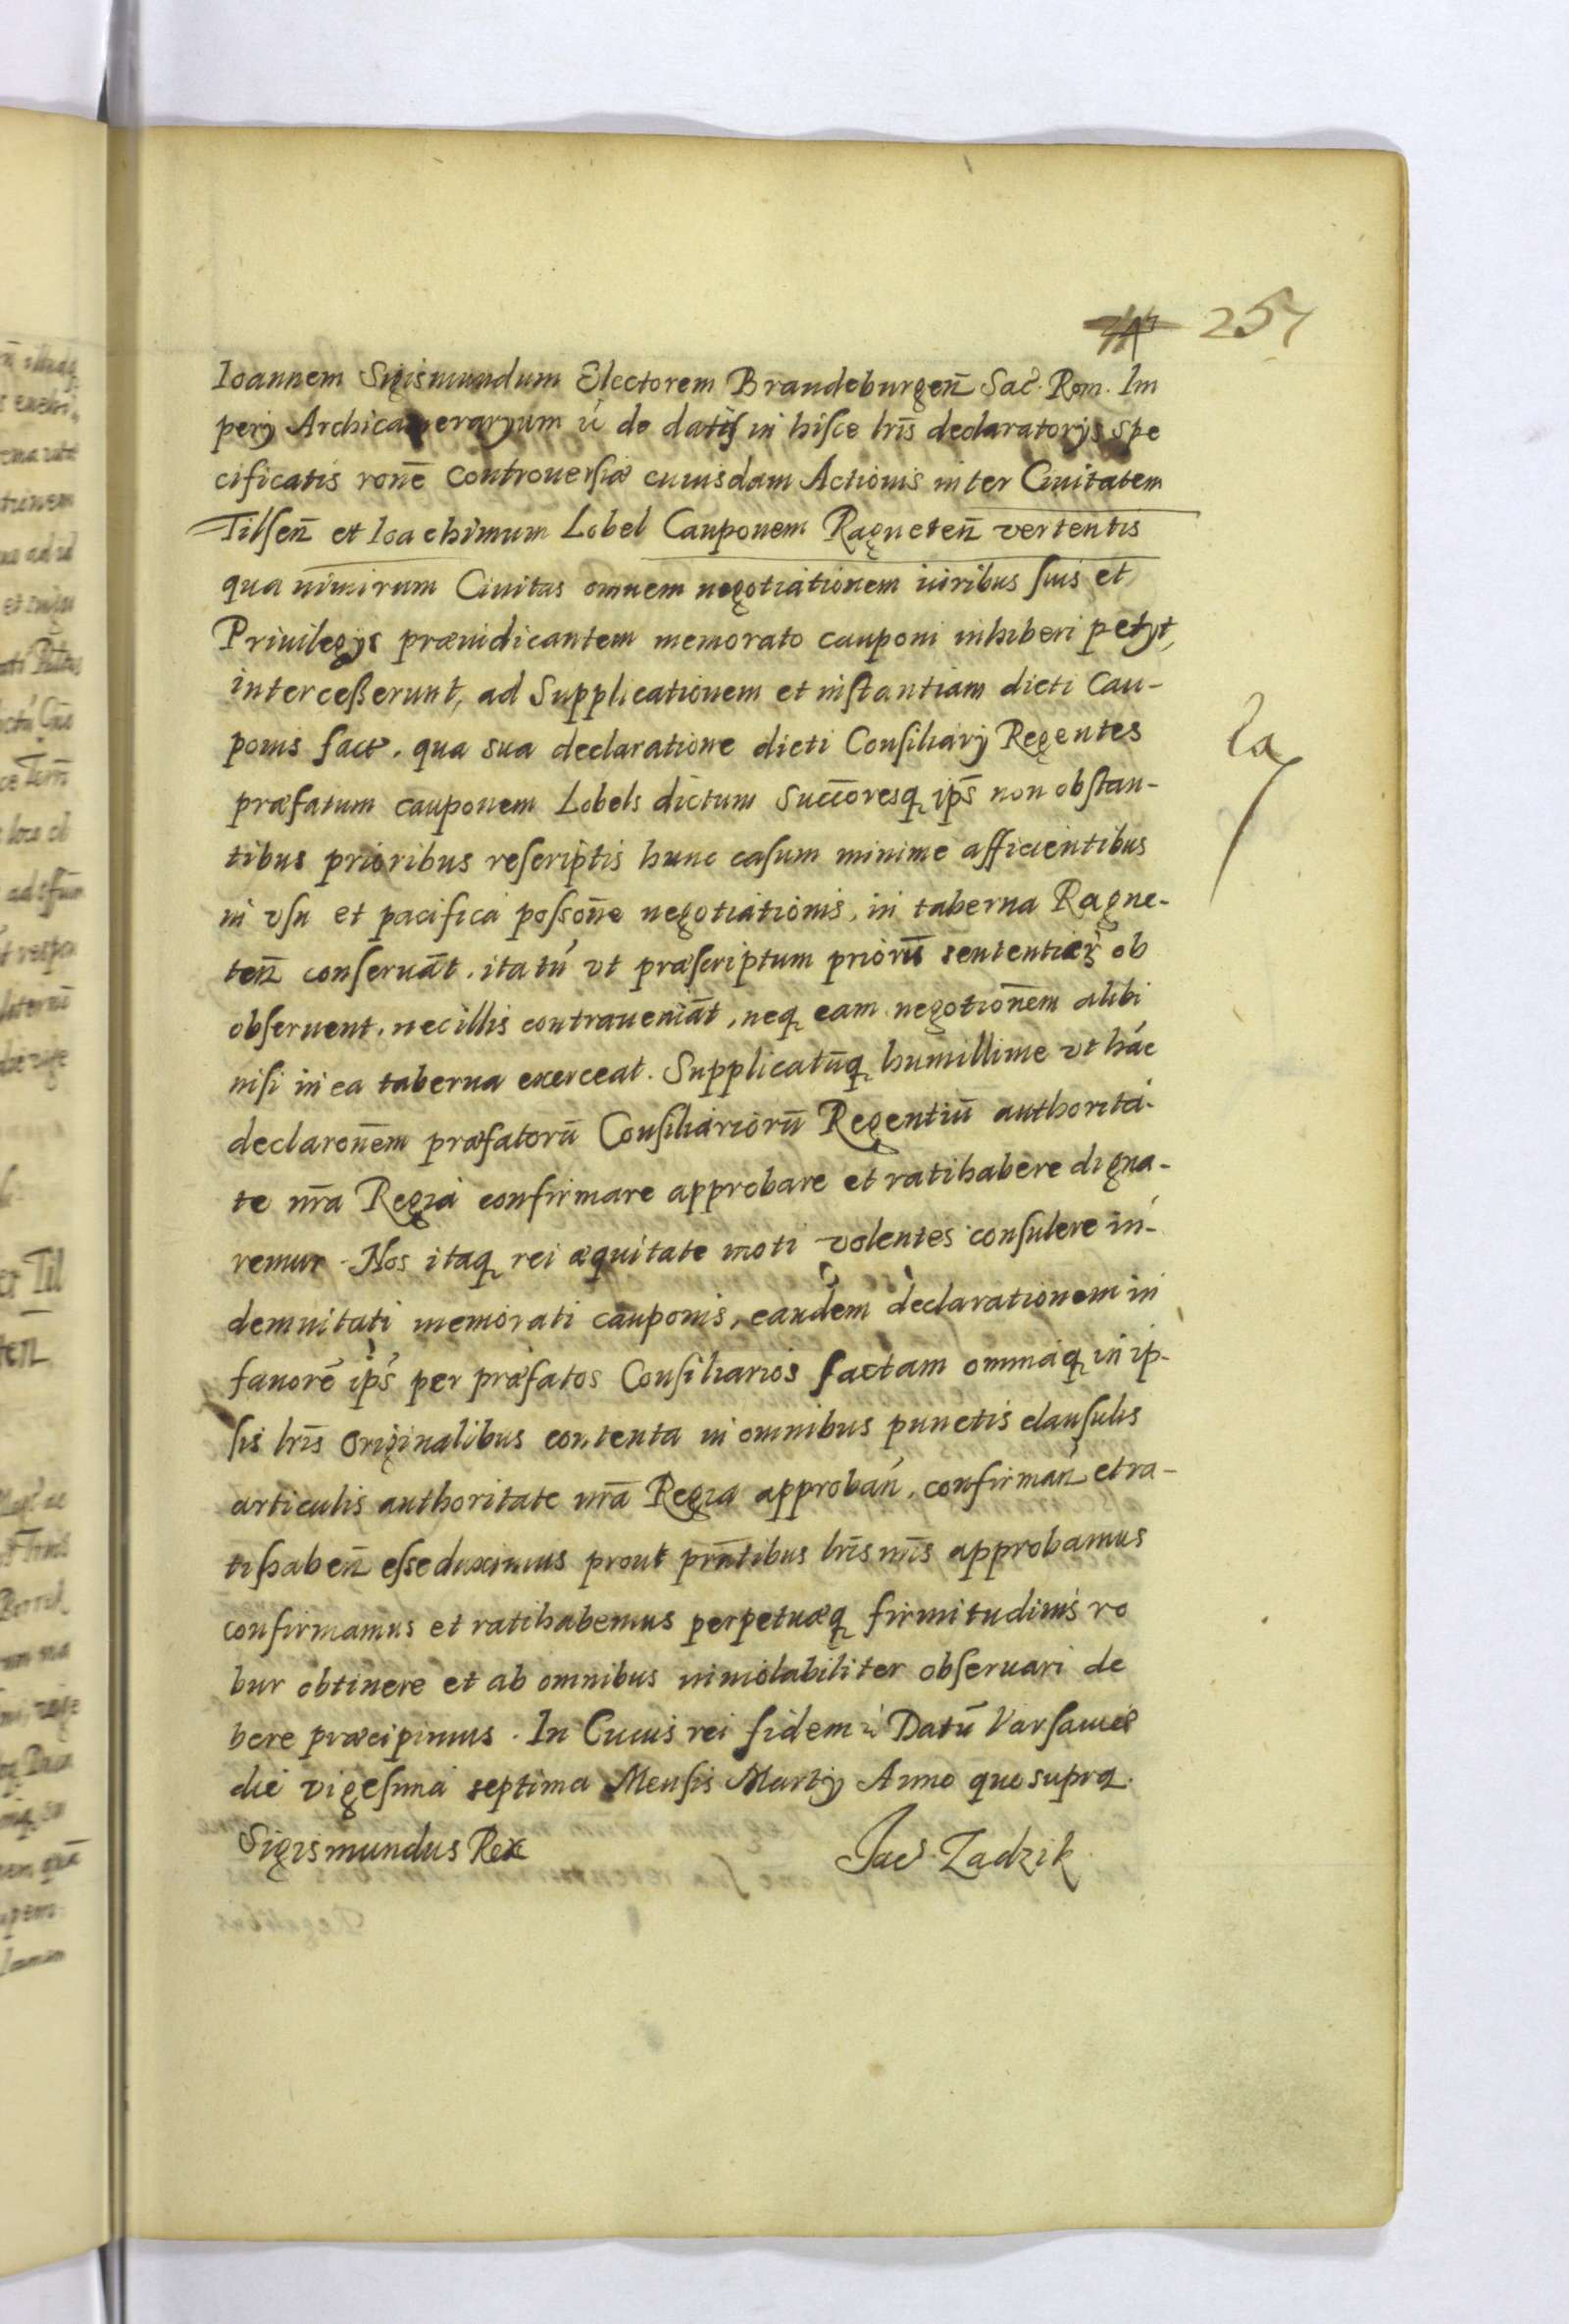 257
Ioannem Sigismundum Electorem Brandeburgeñ Sac. Rom. Im
perij Archicamerarium de datis in hisce lr̃is declaratorijs spe
cificatis rone controuersiæ cuiusdam Actionis inter Ciuitatem
Tilsen̄ et Ioachimum Lobel Cauponem Ragneten̄ vertentis
qua nimirum Ciuitas omnem negotiationem iuribus suis et
Priuilegijs præiudicantem memorato cauponi inhiberi petijt,
intercesserunt, ad Supplicationem et instantiam dicti Cau-
ponis factæ. qua sua declaratione dicti Consiliarij Regentes
præfatum cauponem Lobels dictum Succoresq ips̄ non obstan-
tibus prioribus rescriptis hunc casum minime afficientibus
in vsu et pacifica possone negotiationis, in taberna Ragne-
ten̄ conseruāt. ita tn̄ vt præscriptum priorū sententiar ob
obseruent. nec illis contraueniāt, neq eam negotionem alibi
nisi in ea taberna exerceat. Supplicatūq humillime vt hác
declaronem præfatorū Consiliariorū Regentiū authorita-
te nr̄a Regia confirmare approbare et ratihabere digna-
remur. Nos itaq rei æquitate moti volentes consulere in-
demnitati memorati cauponis, eandem declarationem in
fauorē ips̄ per præfatos Consiliarios factam omniaq in ip-
sis lr̄is originalibus contenta in omnibus punctis clausulis
articulis authoritate nr̄a Regia approban̄, confirman̄ et ra-
tihaben̄ esse duximus prout prn̄tibus lr̄is nr̄is approbamus
confirmamus et ratihabemus perpetuæq firmitudinis ro
bur obtinere et ab omnibus inuiolabiliter obseruari de
bere præcipimus. In Cuius rei fidem Datū Varsauiæ
die vigesima septima Mensis Martij Anno quo supra.
Sigismundus Rex Jac. Zadzik